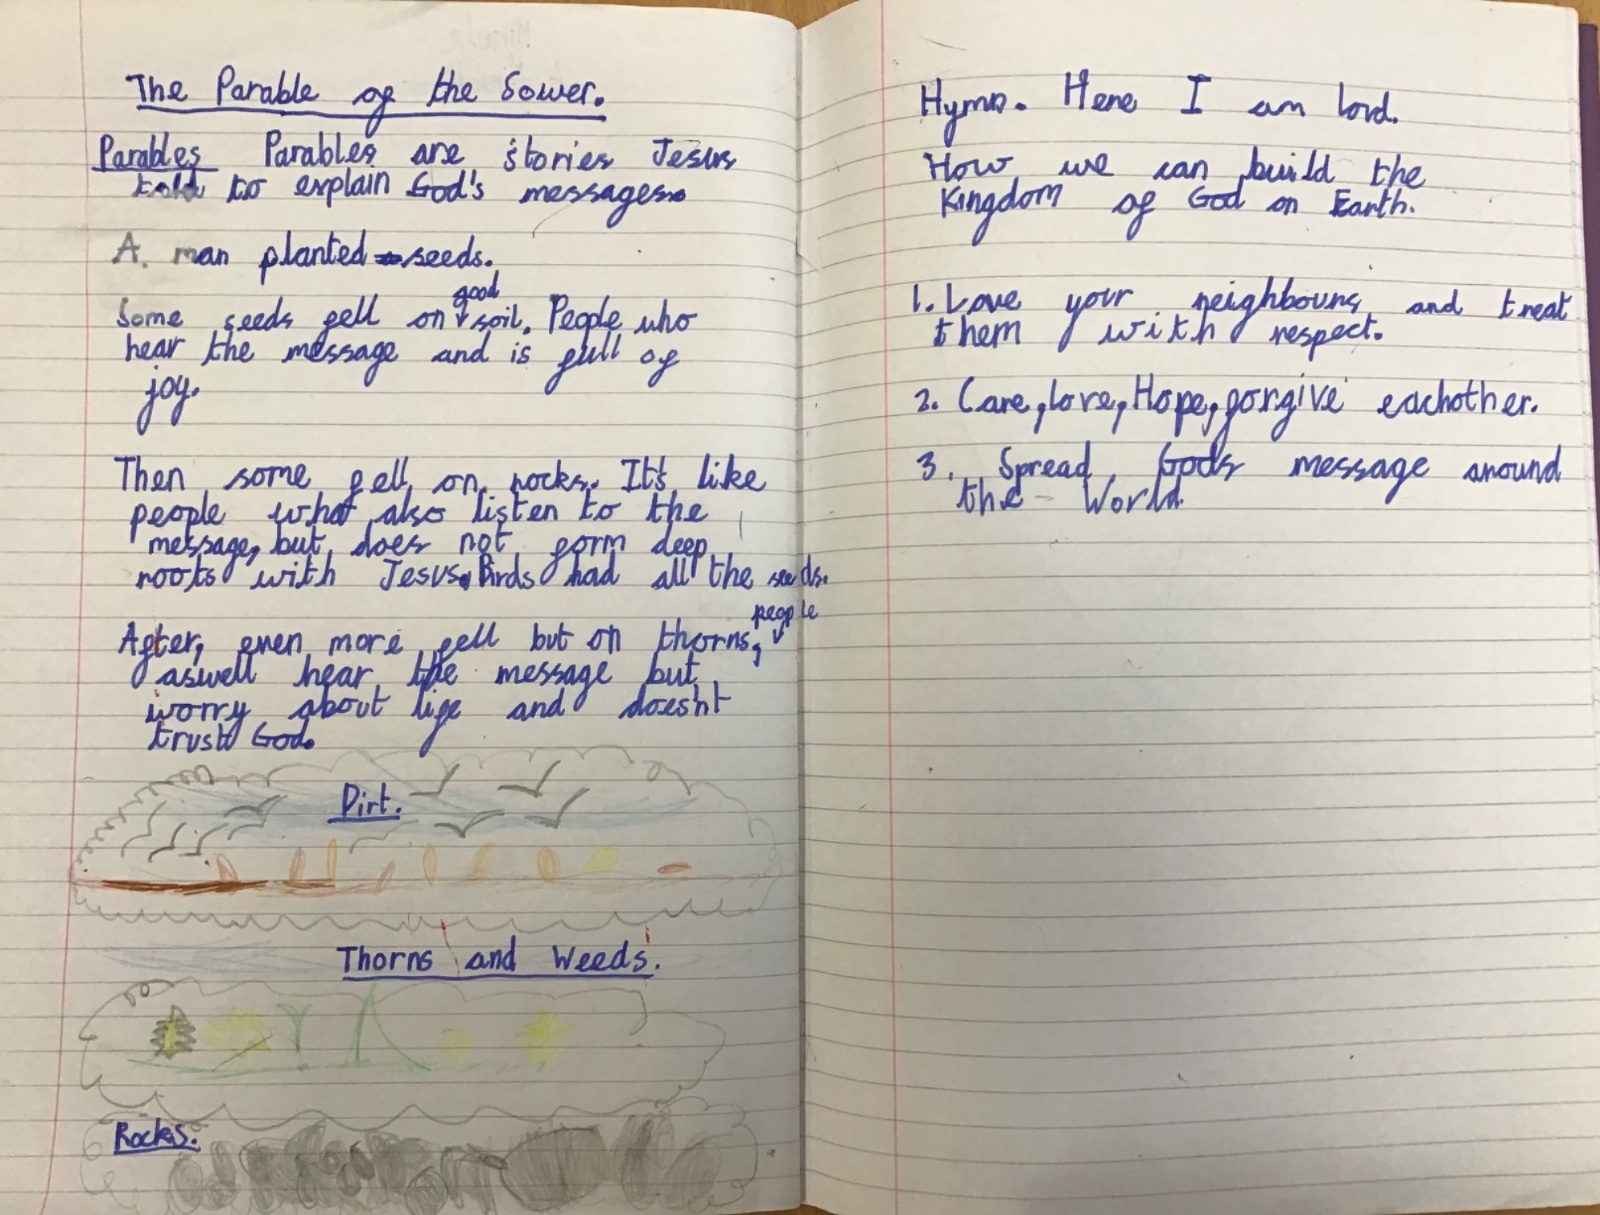 The Parable of the Sower.
Parables Parables are stories Jesus
told to explain God's messages.
A. man planted seeds.
good
Some seeds fell on soil. People who
hear the message and is full of
joy.
Then some fell on rocks. It's like
people what also listen to the
message, but does not form deep
roots with Jesus. Birds had all the seeds.
people
After, even more fell but on thorns,
aswell hear the message but
worry about life and doesn't
trust God.
Dirt.
Thorns and Weeds.
Rocks.
Hymn. Here I am lord.
How we can build the
Kingdom of God on Earth.
1. Love your neighbours and treat
them with respect.
2. Care, love, Hope, forgive eachother.
3. Spread Gods message around
the World.